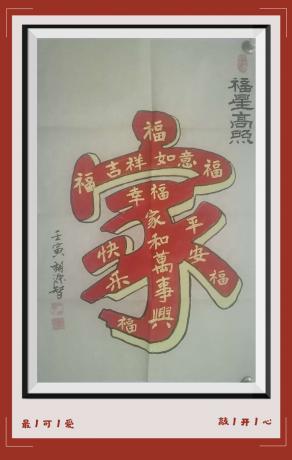 福星高照
福
吉祥如意
福
福
幸福
家和萬事興
平安
福
快乐
福
壬寅
最 可 爱
敲 开 心